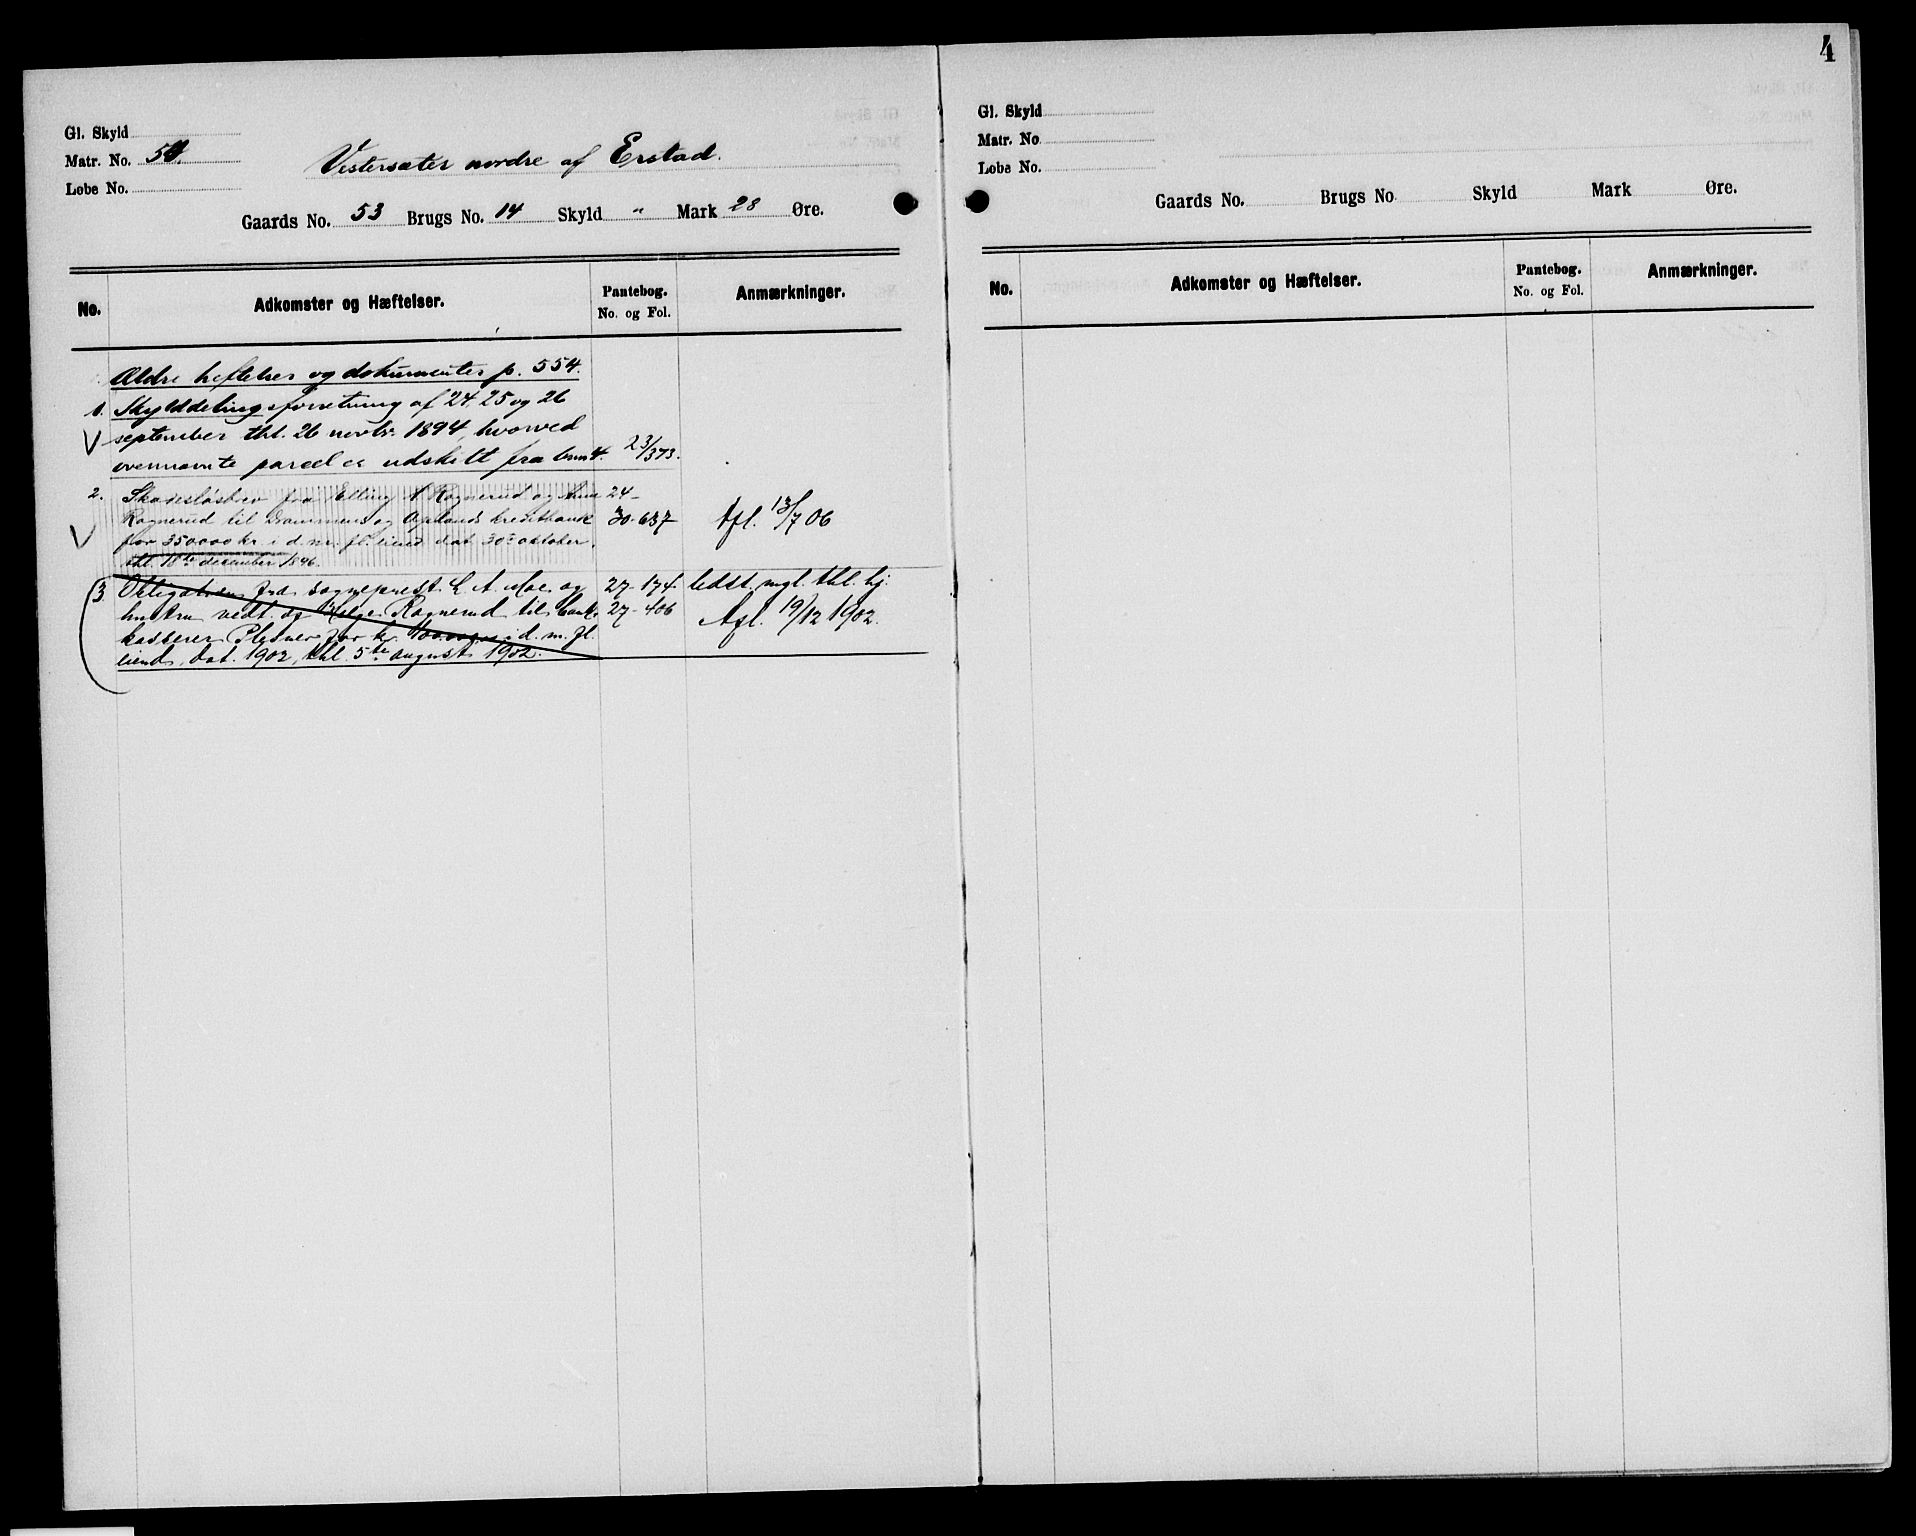 Gl. Skyld
Matr. No. 54.
Løbe No.
Vestersæter nordre af Erstad.
Gaards No. 53 Brugs No. 14 Skyld " Mark 28 Øre.
No. Adkomster og Hæftelser. Pantebog. No. og Fol. Anmærkninger.
Ældre heftelser og dokumenter p. 554.
1. Skylddelingsforretning af 24, 25 og 26
september thl. 26 novbr. 1894, hvorved
ovennævnte parcel er udskilt fra brn 4. 23/373.
2. Skadesløsbrev fra Elling A Rognerud og Anne 24-
Rognerud til Drammens og Oplands kreditbank 30-637 Afl. 13/7 06
for 350000 kr. i d. m. fl. eiend. dat. 30te oktober,
thl. 18de december 1896.
3 Obligation fra sogneprest L A Moe og 27-174. ledst. mgl. thl. hj.
hustru vedt. og Helge Rognerud til bank- 27-406 Afl. 19/12 1902.
kasserer Plesner for kr. i d. m. fl.
eiend. dat. 1902, thl. 5te august 1902.
4
Gl. Skyld
Matr. No
Løbe No.
Gaards No. Brugs No. Skyld Mark Øre.
No. Adkomster og Hæftelser. Pantebog. No. og Fol. Anmærkninger.